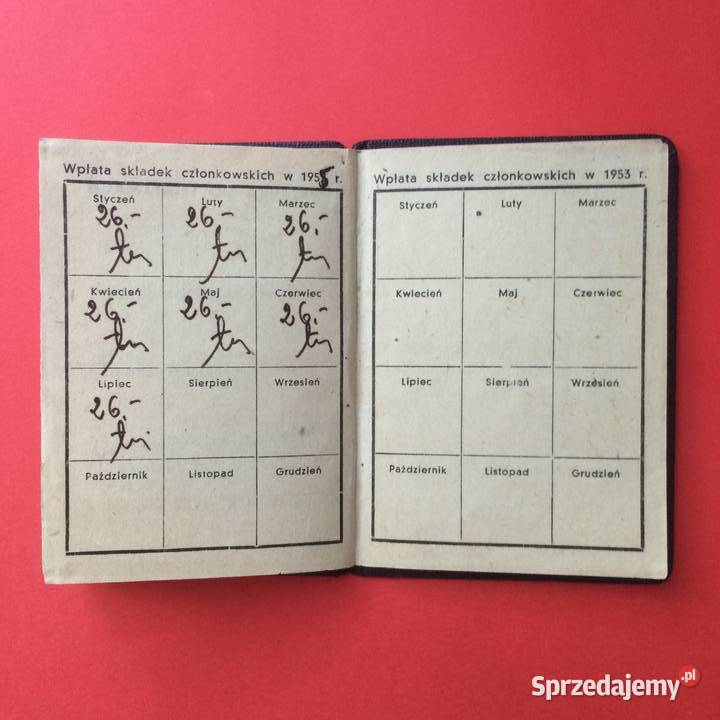 Wpłata składek członkowskich w 1955 r.
Styczeń Luty Marzec
26.- 26.- 26.-
Kwiecień Maj Czerwiec
26.- 26.- 26.-
Lipiec Sierpień Wrzesień
26.-
Październik Listopad Grudzień
Wpłata składek członkowskich w 1953 r.
Styczeń Luty Marzec
Kwiecień Maj Czerwiec
Lipiec Sierpień Wrzesień
Październik Listopad Grudzień
Sprzedajemy.pl